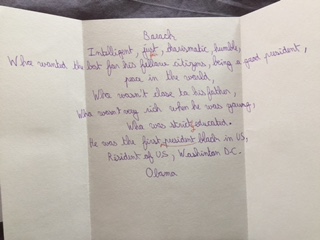 Barack
Intelligent, just, charismatic, humble,
Who wanted the best for his fellow citizens, being a good president,
peace in the world,
Who wasn't close to his father,
Who wasn't very rich when he was young,
Who was strict educated.
He was the first president black in US,
Resident of US, Washinton D.C.
Obama